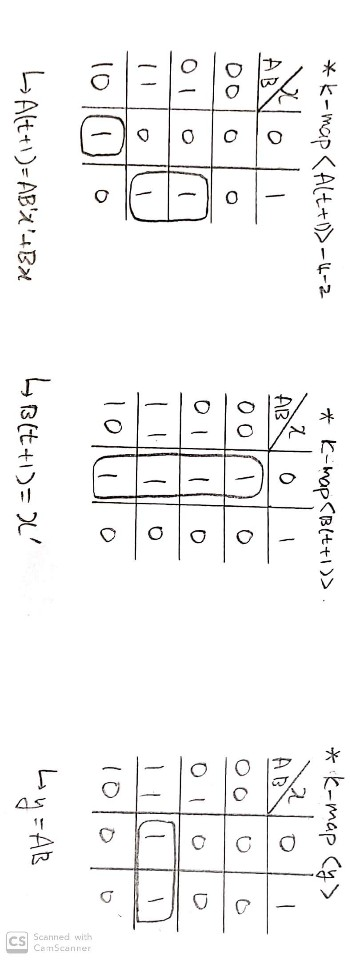 * K-map <A(t+1)> -4-2
AB\x 0 1
00 0 0
01 0 1
11 0 1
10 1 0
↳ A(t+1) = AB'x' + Bx
* K-map <B(t+1)>.
AB\x 0 1
00 1 0
01 1 0
11 1 0
10 1 0
↳ B(t+1) = x'
* K-map <y>
AB\x 0 1
00 0 0
01 0 0
11 1 1
10 0 0
↳ y = AB
CS Scanned with
CamScanner